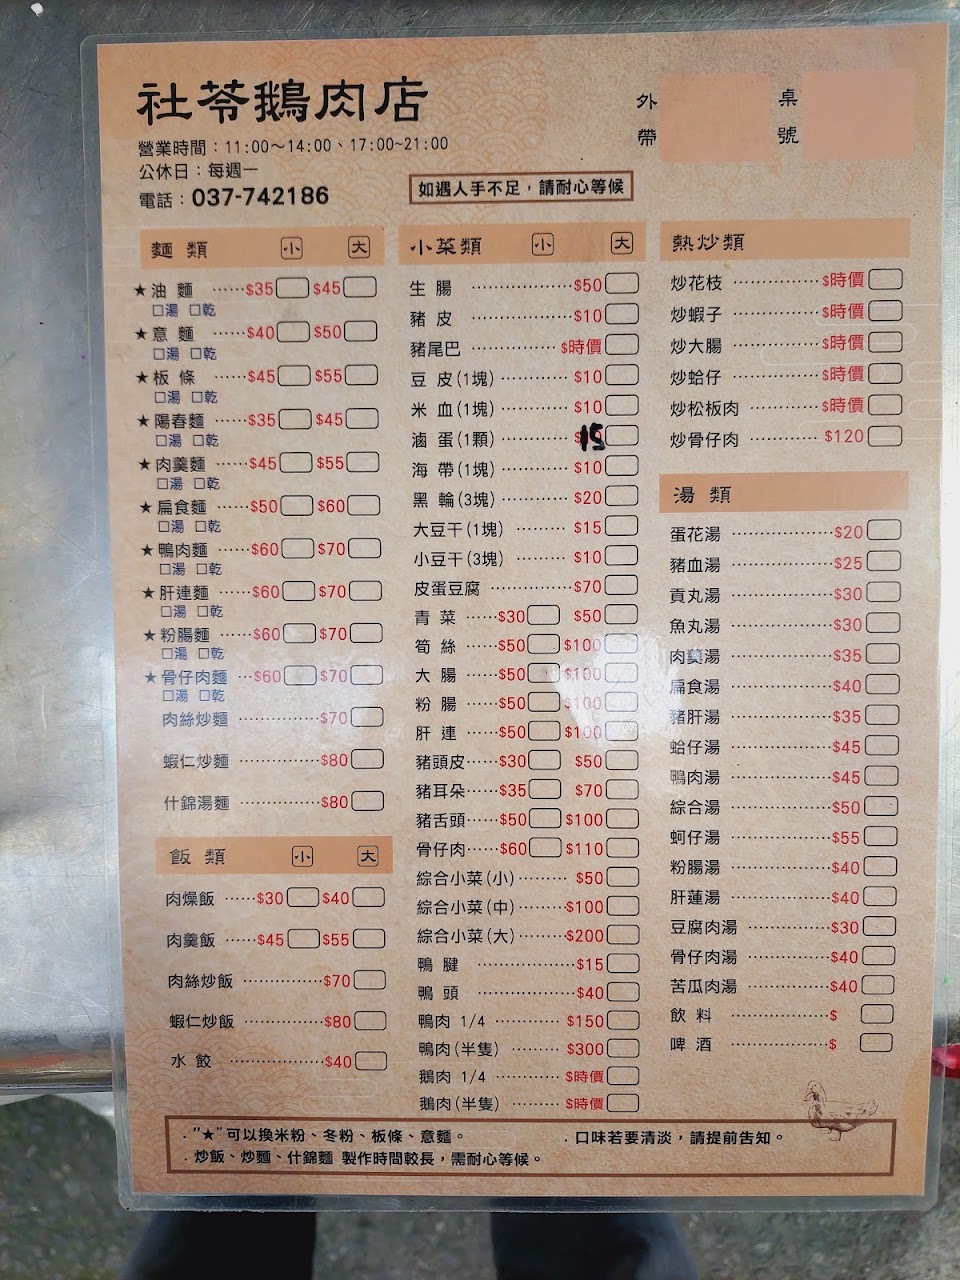 社苓鵝肉店
外帶
桌號
營業時間：11:00～14:00、17:00~21:00
公休日：每週一
電話：037-742186
如遇人手不足，請耐心等候
麵 類 小 大
★油 麵 ······$35 $45
□湯 □乾
★意 麵 ······$40 $50
□湯 □乾
★板 條 ······$45 $55
□湯 □乾
★陽春麵 ······$35 $45
□湯 □乾
★肉羹麵 ······$45 $55
□湯 □乾
★扁食麵 ······$50 $60
□湯 □乾
★鴨肉麵 ······$60 $70
□湯 □乾
★肝連麵 ······$60 $70
□湯 □乾
★粉腸麵 ······$60 $70
□湯 □乾
★骨仔肉麵 ···$60 $70
□湯 □乾
肉絲炒麵 ···············$70
蝦仁炒麵 ···············$80
什錦湯麵 ···············$80
飯 類 小 大
肉燥飯 ······$30 $40
肉羹飯 ······$45 $55
肉絲炒飯 ···············$70
蝦仁炒飯 ···············$80
水 餃 ·················$40
小菜類 小 大
生 腸 ···················$50
豬 皮 ···················$10
豬尾巴 ················$時價
豆 皮(1塊) ············$10
米 血(1塊) ············$10
滷 蛋(1顆) ············$15
海 帶(1塊) ············$10
黑 輪(3塊) ············$20
大豆干(1塊) ·········$15
小豆干(3塊) ·········$10
皮蛋豆腐 ···············$70
青 菜 ······$30 $50
筍 絲 ······$50 $100
大 腸 ······$50 $100
粉 腸 ······$50 $100
肝 連 ······$50 $100
豬頭皮······$30 $50
豬耳朵······$35 $70
豬舌頭······$50 $100
骨仔肉······$60 $110
綜合小菜(小) ······ $50
綜合小菜(中) ·······$100
綜合小菜(大) ·······$200
鴨 腱 ··················$15
鴨 頭 ··················$40
鴨肉 1/4 ············$150
鴨肉(半隻) ·········$300
鵝肉 1/4 ············$時價
鵝肉(半隻) ·········$時價
熱炒類
炒花枝 ···············$時價
炒蝦子 ···············$時價
炒大腸 ···············$時價
炒蛤仔 ···············$時價
炒松板肉 ············$時價
炒骨仔肉 ············$120
湯 類
蛋花湯 ··················$20
豬血湯 ··················$25
貢丸湯 ··················$30
魚丸湯 ··················$30
肉羹湯 ··················$35
扁食湯 ··················$40
豬肝湯 ··················$35
蛤仔湯 ··················$45
鴨肉湯 ··················$45
綜合湯 ··················$50
蚵仔湯 ··················$55
粉腸湯 ··················$40
肝蓮湯 ··················$40
豆腐肉湯 ···············$30
骨仔肉湯 ···············$40
苦瓜肉湯 ···············$40
飲 料 ·················$
啤 酒 ·················$
．"★"可以換米粉、冬粉、板條、意麵。
．口味若要清淡，請提前告知。
．炒飯、炒麵、什錦麵 製作時間較長，需耐心等候。